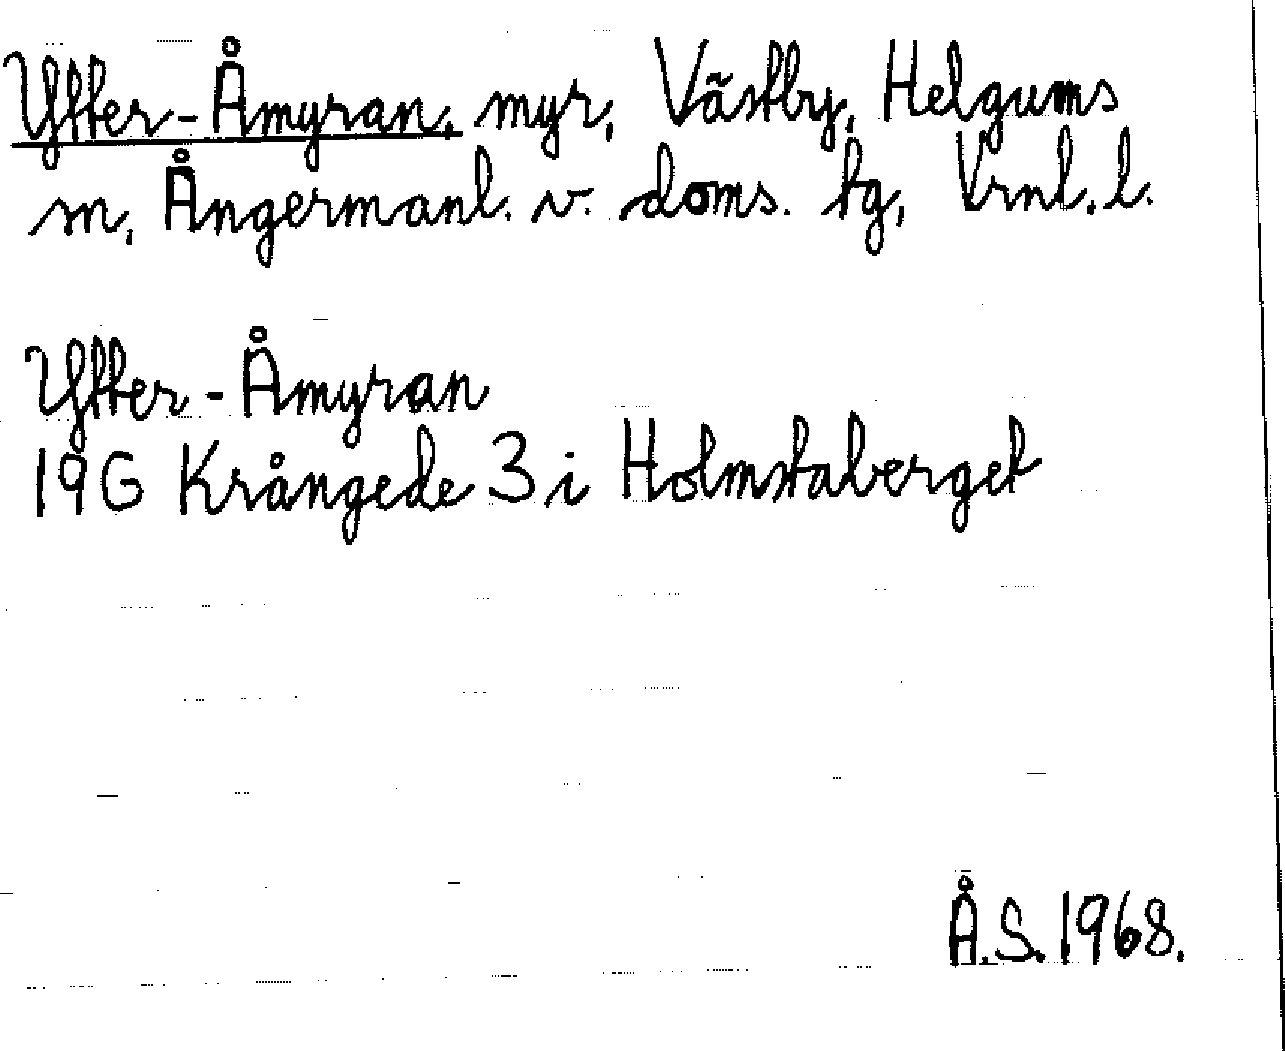 Ytter-Åmyran, myr, Västby, Helgums
sn, Ångermanl. v. doms. tg, Vrnl. l.
Ytter-Åmyran
19G Krångede 3 i Holmstaberget
Å.S. 1968.